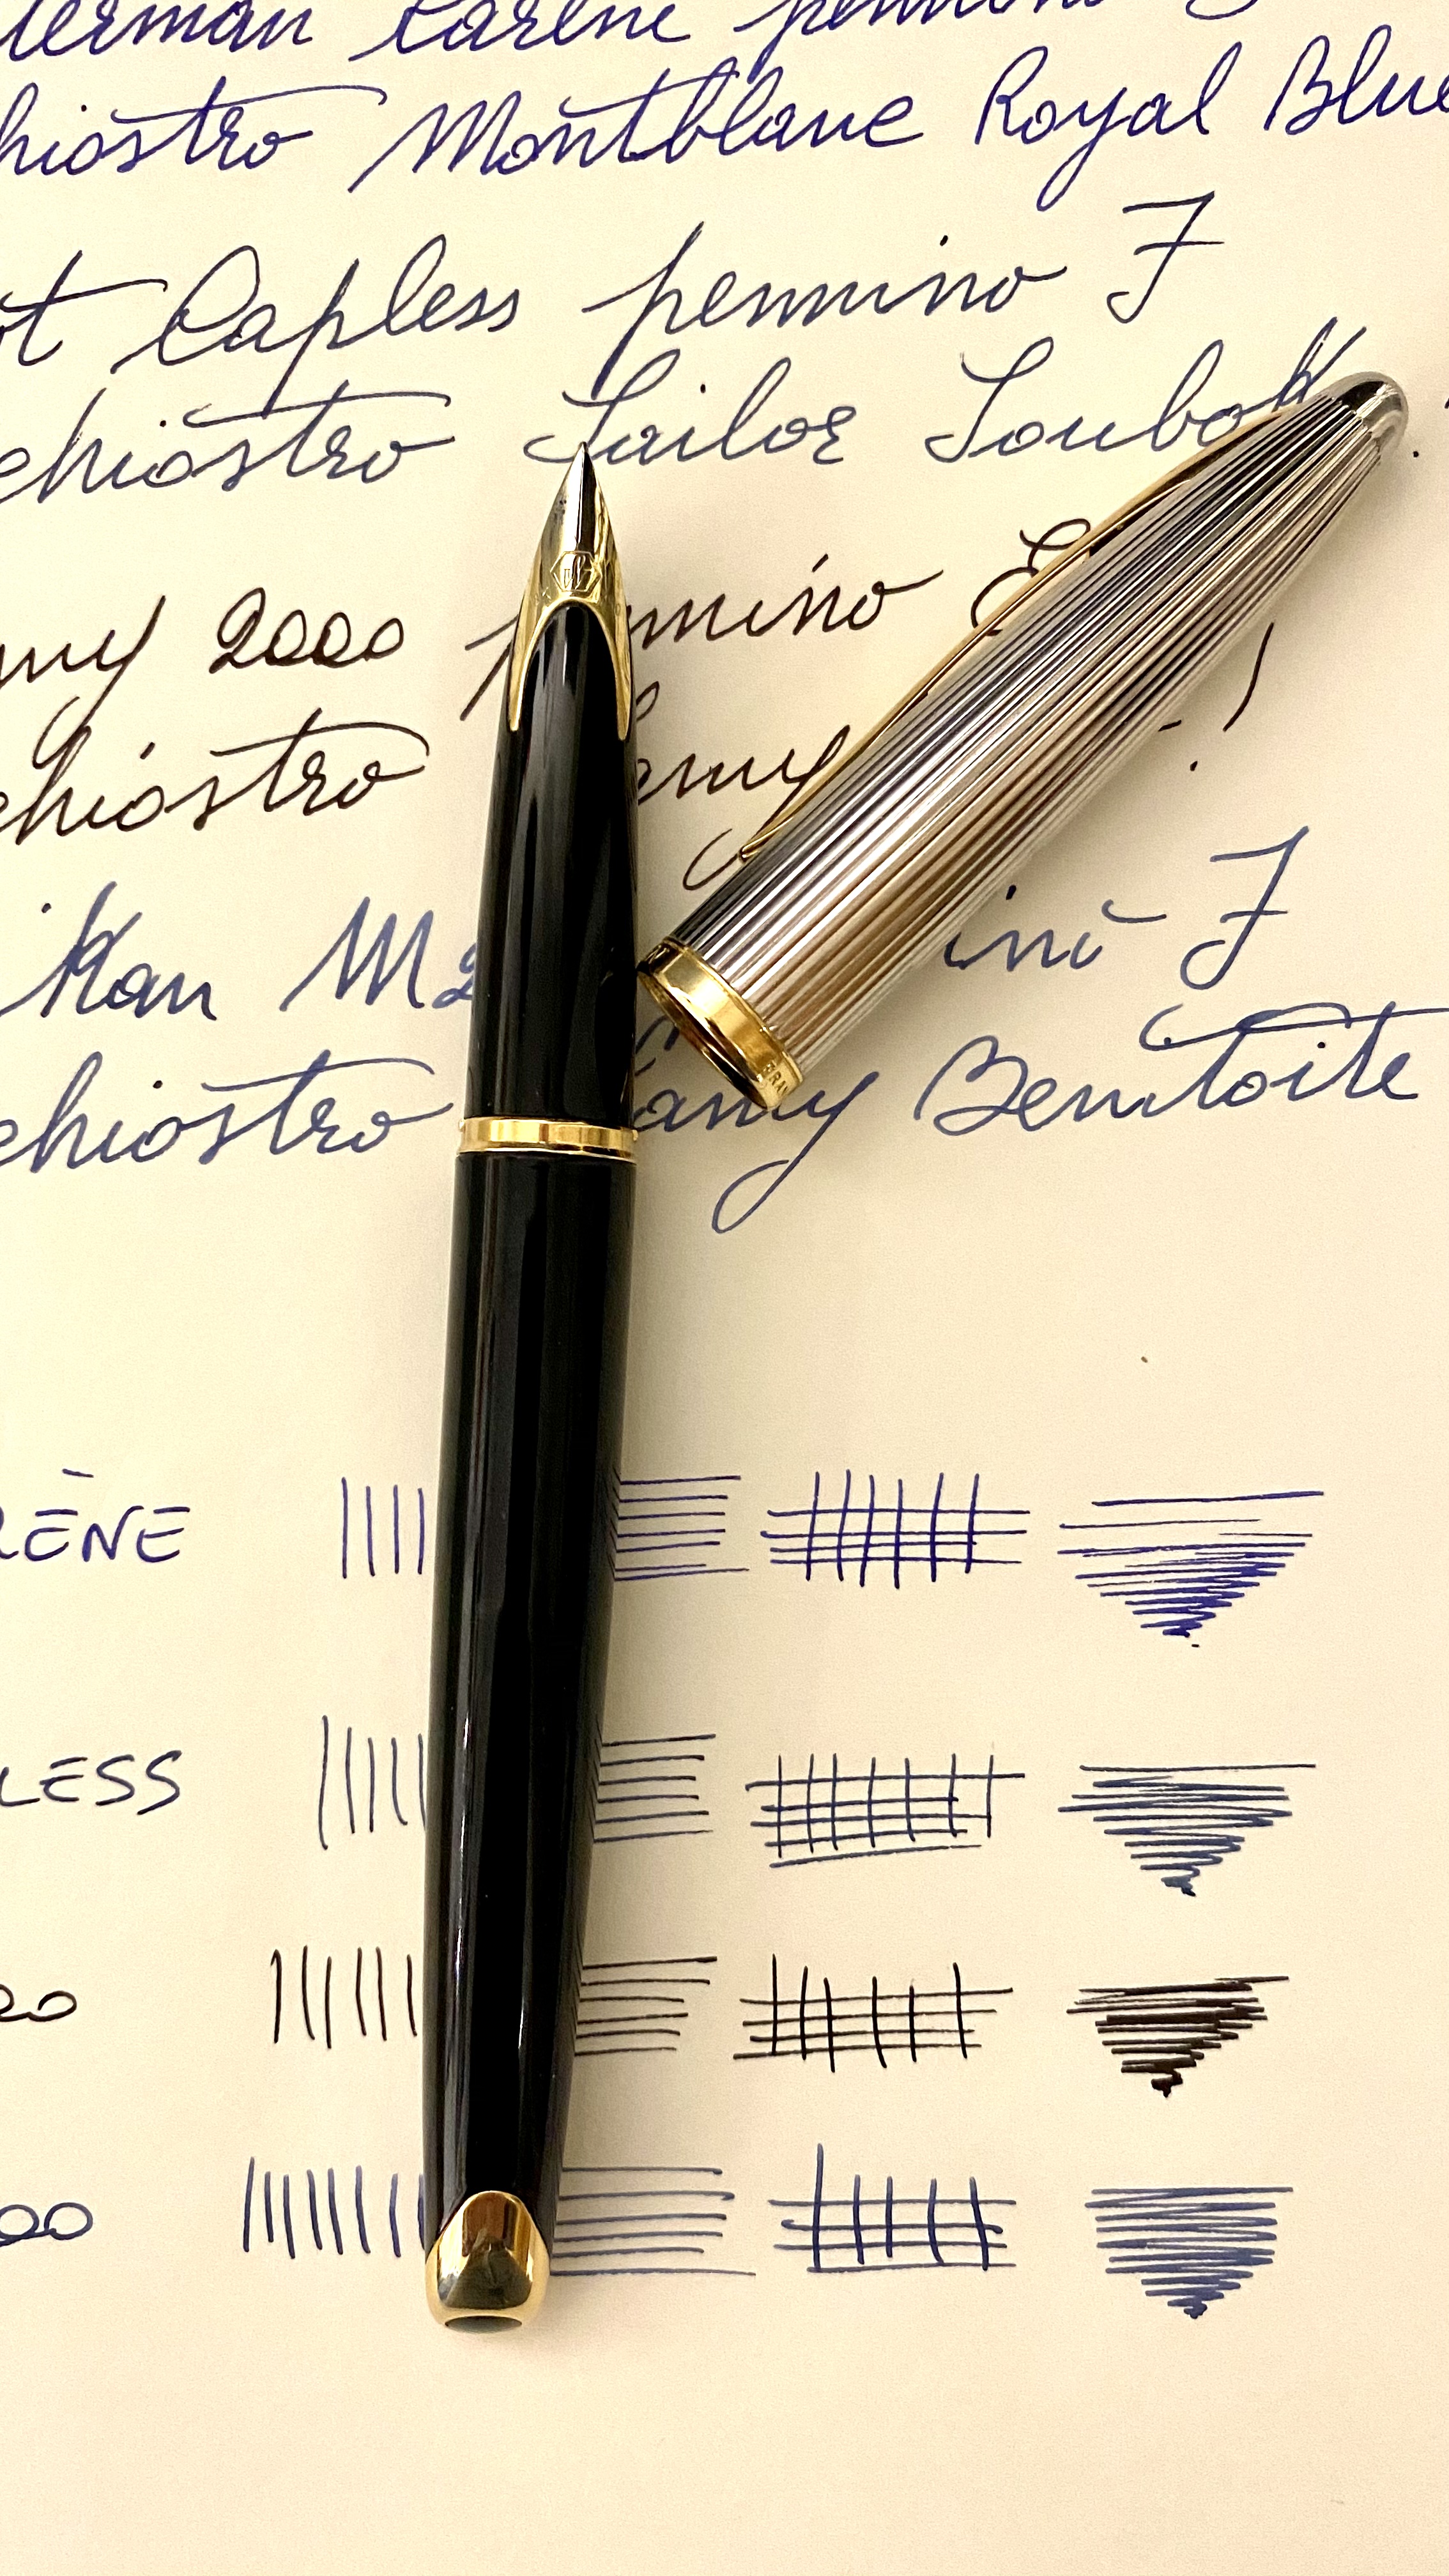 terman Carène pennino
hiostro Montblanc Royal Blue
ot Capless pennino F
chiostro Sailor Souboku.
my 2000 pennino E
chiostro Lamy !
ikan M2 ino F
chiostro Lamy Benitoite
RÈNE
LESS
00
00